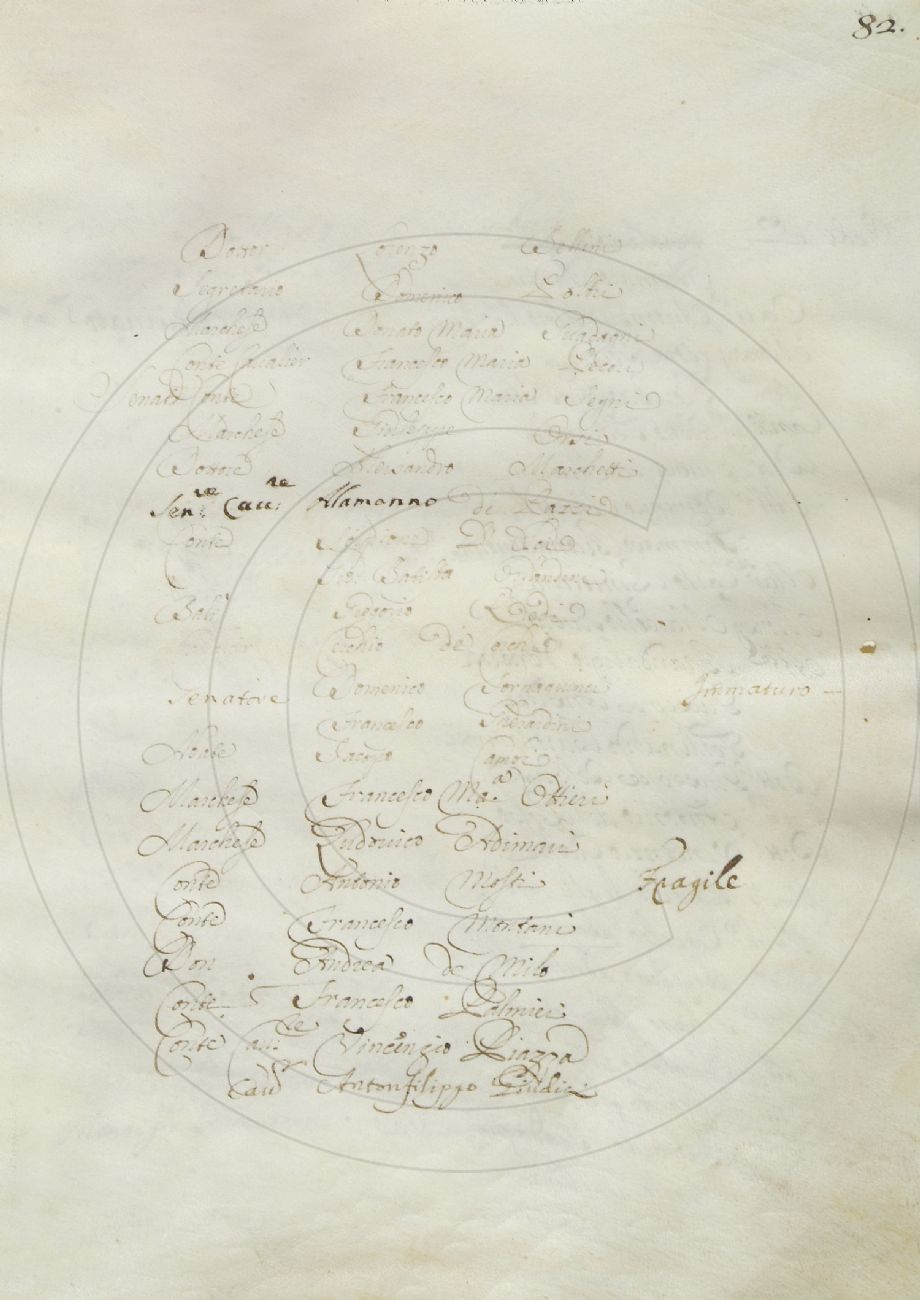 82.
Dottor Lorenzo Bellini
Segretario Domenico Poltri
Marchese Donato Maria Guadagni
Conte Cavalier Francesco Maria
Senatr Conte Francesco Maria Segni
Marchese Giuseppe Orsi
Dottore Alessandro Marchetti
Senre Caure Alamanno de Pazzi
Conte
Gio: Batista Orlandini
Balì Gregorio Redi
de
Senatore Domenico Tornaquinci Immaturo —
Francesco Gherardini
Abate Jacopo
Marchese Francesco Ma.a Ottieri
Marchese Ludovico Adimari
Conte Antonio Mosti Fragile
Conte Francesco Montani
Don Andrea de Milo
Conte Francesco Palmieri
Conte Cau:re Vincenzio Piazza
Caur Antonfilippo Giudici